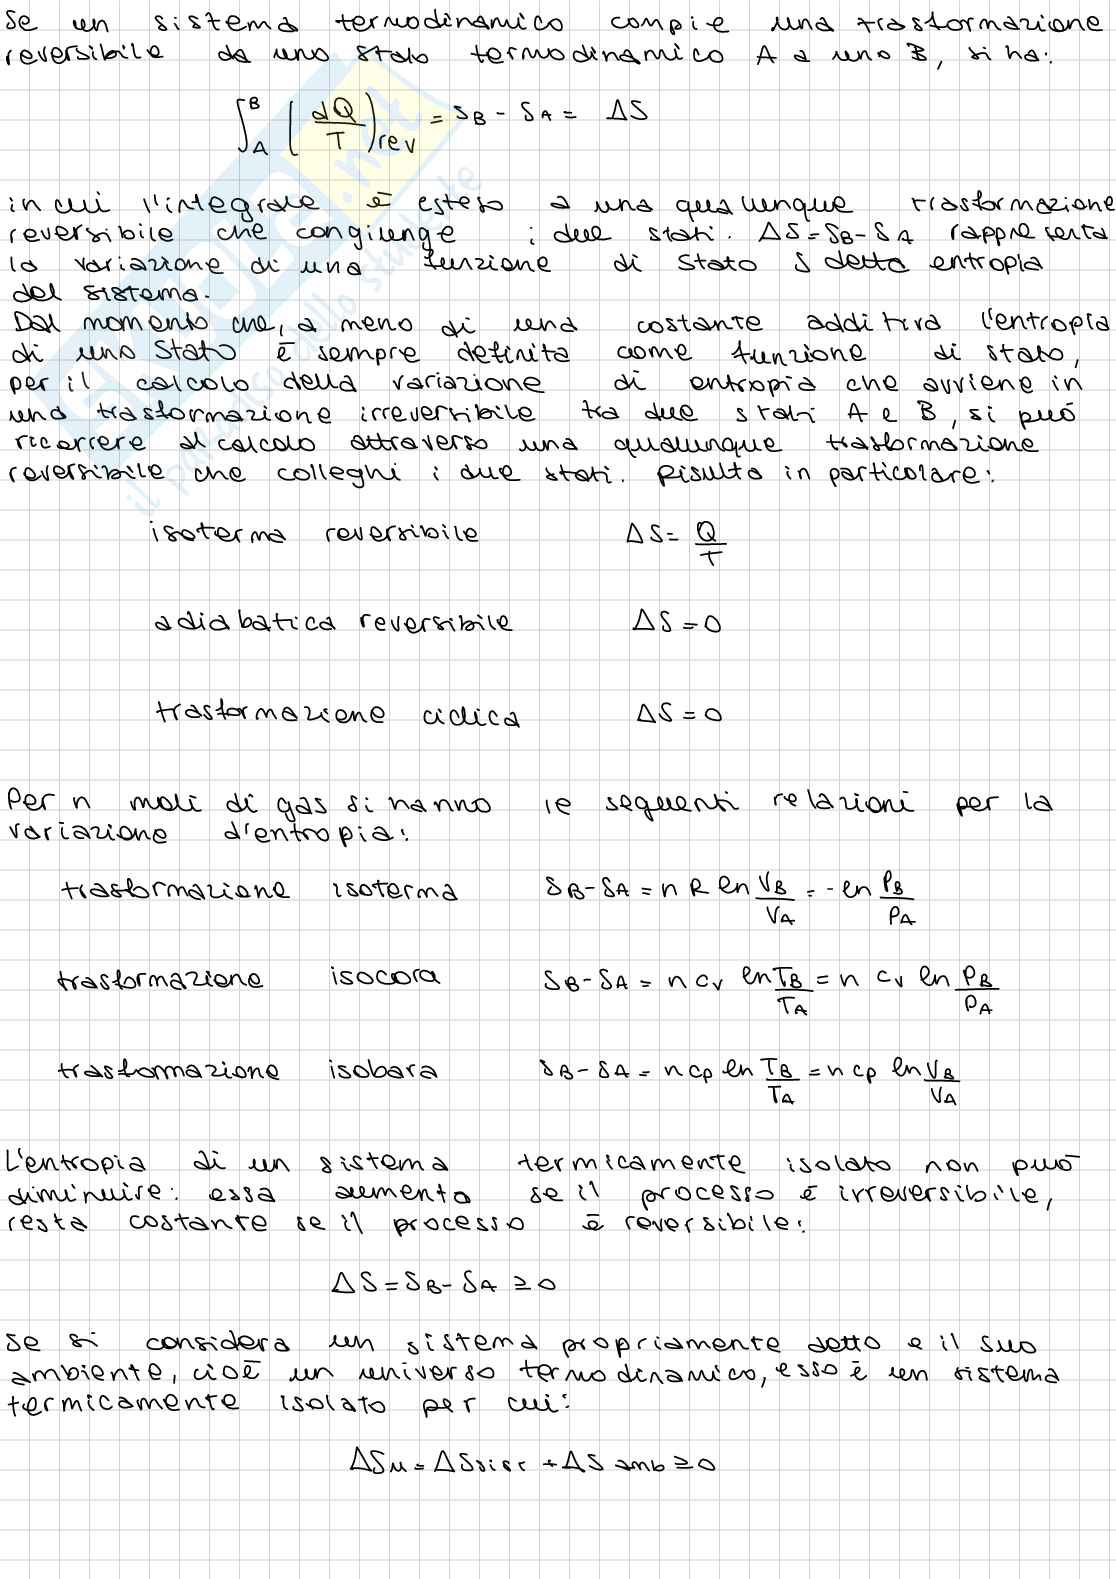 Se un sistema termodinamico compie una trasformazione
reversibile da uno stato termodinamico A a uno B, si ha:
∫_A^B (dQ/T)_rev = S_B - S_A = ΔS
in cui l'integrale è esteso a una qualunque trasformazione
reversibile che congiunge i due stati. ΔS = S_B - S_A rappresenta
la variazione di una funzione di stato S detta entropia
del sistema.
Dal momento che, a meno di una costante additiva l'entropia
di uno stato è sempre definita come funzione di stato,
per il calcolo della variazione di entropia che avviene in
una trasformazione irreversibile tra due stati A e B, si può
ricorrere al calcolo attraverso una qualunque trasformazione
reversibile che colleghi i due stati. Risulta in particolare:
isoterma reversibile ΔS = Q/T
adiabatica reversibile ΔS = 0
trasformazione ciclica ΔS = 0
Per n moli di gas si hanno le seguenti relazioni per la
variazione d'entropia:
trasformazione isoterma S_B - S_A = n R ln V_B/V_A = - ln P_B/P_A
trasformazione isocora S_B - S_A = n c_v ln T_B/T_A = n c_v ln P_B/P_A
trasformazione isobara S_B - S_A = n c_p ln T_B/T_A = n c_p ln V_B/V_A
L'entropia di un sistema termicamente isolato non può
diminuire: essa aumenta se il processo è irreversibile,
resta costante se il processo è reversibile:
ΔS = S_B - S_A ≥ 0
Se si considera un sistema propriamente detto e il suo
ambiente, cioè un universo termodinamico, esso è un sistema
termicamente isolato per cui:
ΔSu = ΔSsist + ΔS amb ≥ 0